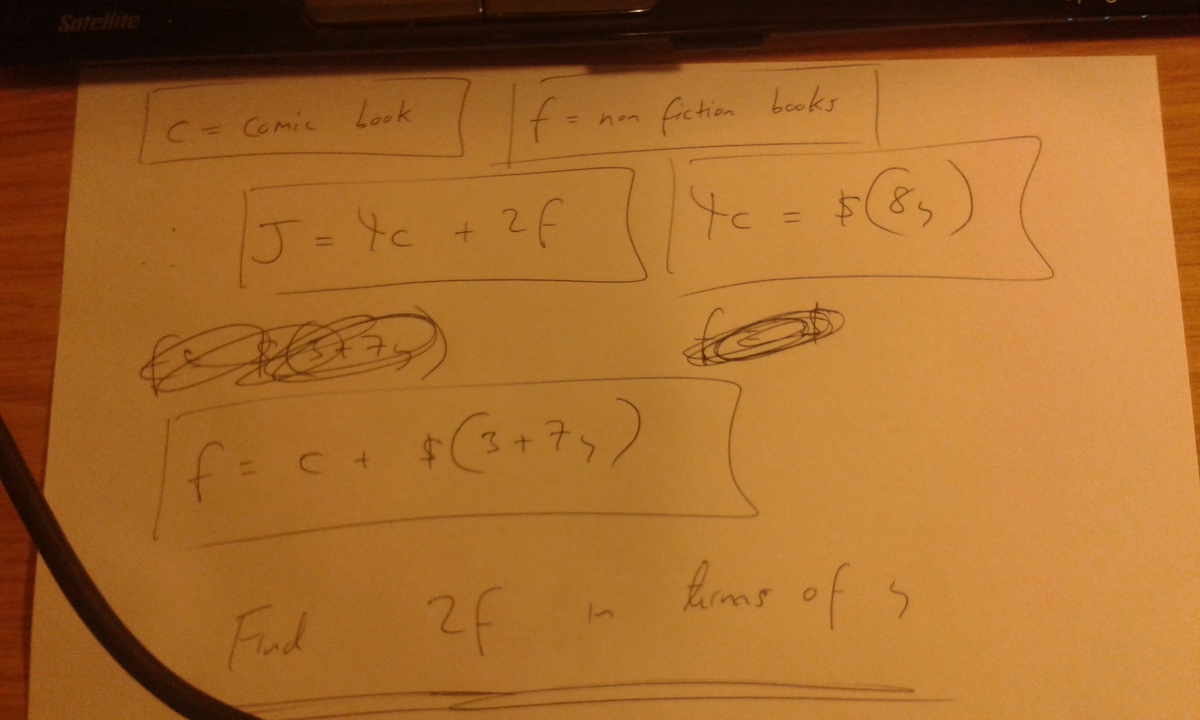 Satellite
c = comic book f = non fiction books
J = 4c + 2f 4c = $(8y)
f = c + $(3+7y)
Find 2f in terms of y